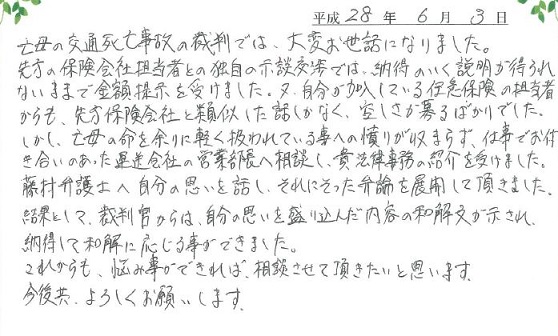 平成 28 年 6 月 3 日
亡母の交通死亡事故の裁判では、大変お世話になりました。
先方の保険会社担当者との独自の示談交渉では、納得のいく説明が得られ
ないままで金額提示を受けました。又、自分が加入している任意保険の担当者
からも、先方保険会社と類似した話しかなく、空しさが募るばかりでした。
しかし、亡母の命を余りに軽く扱われている事への憤りが収まらず、仕事でお付
き合いのあった運送会社の営業部長へ相談し、貴法律事務の紹介を受けました。
藤村弁護士へ自分の思いを話し、それにそった弁論を展開して頂きました。
結果として、裁判官からは、自分の思いを盛り込んだ内容の和解文が示され、
納得して和解に応じる事ができました。
これからも、悩み事ができれば、相談させて頂きたいと思います。
今後共、よろしくお願いします。